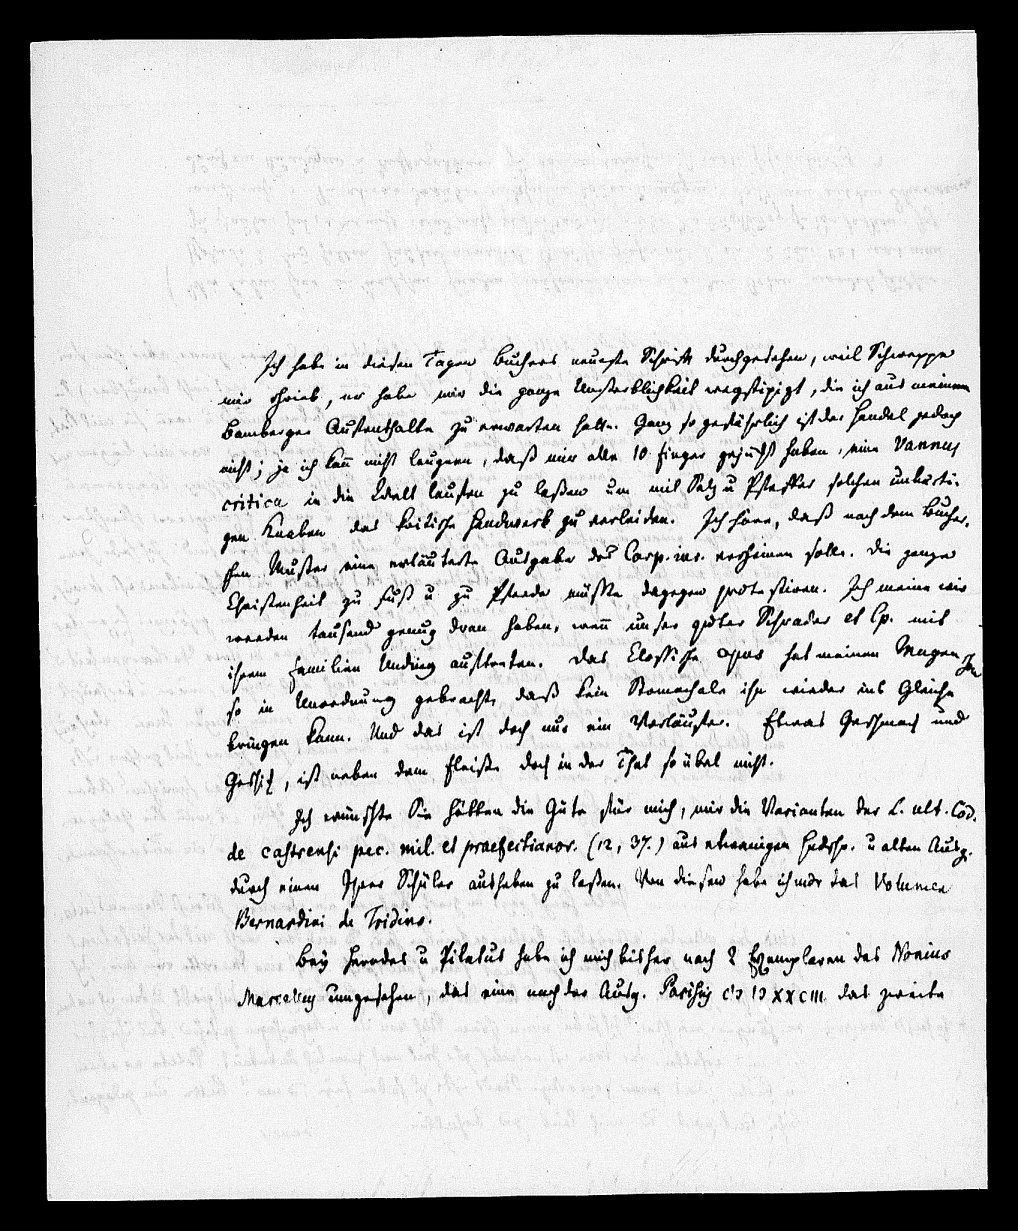 Ich habe in diesen Tagen Buchers neueste Schrift durchgesehen, weil Schweppe
mir schrieb, er habe mir die ganze Unsterblichkeit wegstipizt, die ich aus meinem
Bamberger Aufenthalte zu erwarten hatte. Ganz so gefährlich ist der Handel jedoch
nicht; ja ich kann nicht leugnen, daß mir alle 10 Finger gejuckt haben, eine Vannus
critica in die Welt laufen zu laßen um mit Salz u Pfeffer solchen unbärti-
gen Knaben das kritische Handwerk zu verleiden. Ich höre, daß nach dem Bucher-
schen Muster eine erläuterte Ausgabe des Corp. iur. erscheinen solle. Die ganze
Christenheit zu Fuß u zu Pferde müßte dagegen protestiren. Ich meine wir
werden tausend genug dran haben, wenn unser guter Schrader et Cp. mit
ihrem Familien Unding auftreten. Das Clossische opus hat meinen Magen
so in Unordnung gebracht, daß kein Stomachale ihn wieder ins Gleiche
bringen kann. Und das ist doch nur ein Vorläufer. Etwas Geschmack und
Geschick, ist neben dem Fleiße doch in der That so übel nicht.
Ich wünschte Sie hätten die Güte für mich, mir die Varianten der L. ult. Cod.
de castrensi pec. mil. et praefectianor. (12, 37.) aus etwanigen Hndschr. u alten Ausg.
durch einen Ihrer Schüler ausheben zu laßen. Von diesen habe ich nur das Volumen
Bernardini de Tridino.
Bey Herodes u Pilatus habe ich mich bisher nach 2 Exemplaren des Nonius
Marcellus umgesehen, das eine nach der Ausg. Parisiis das zweite